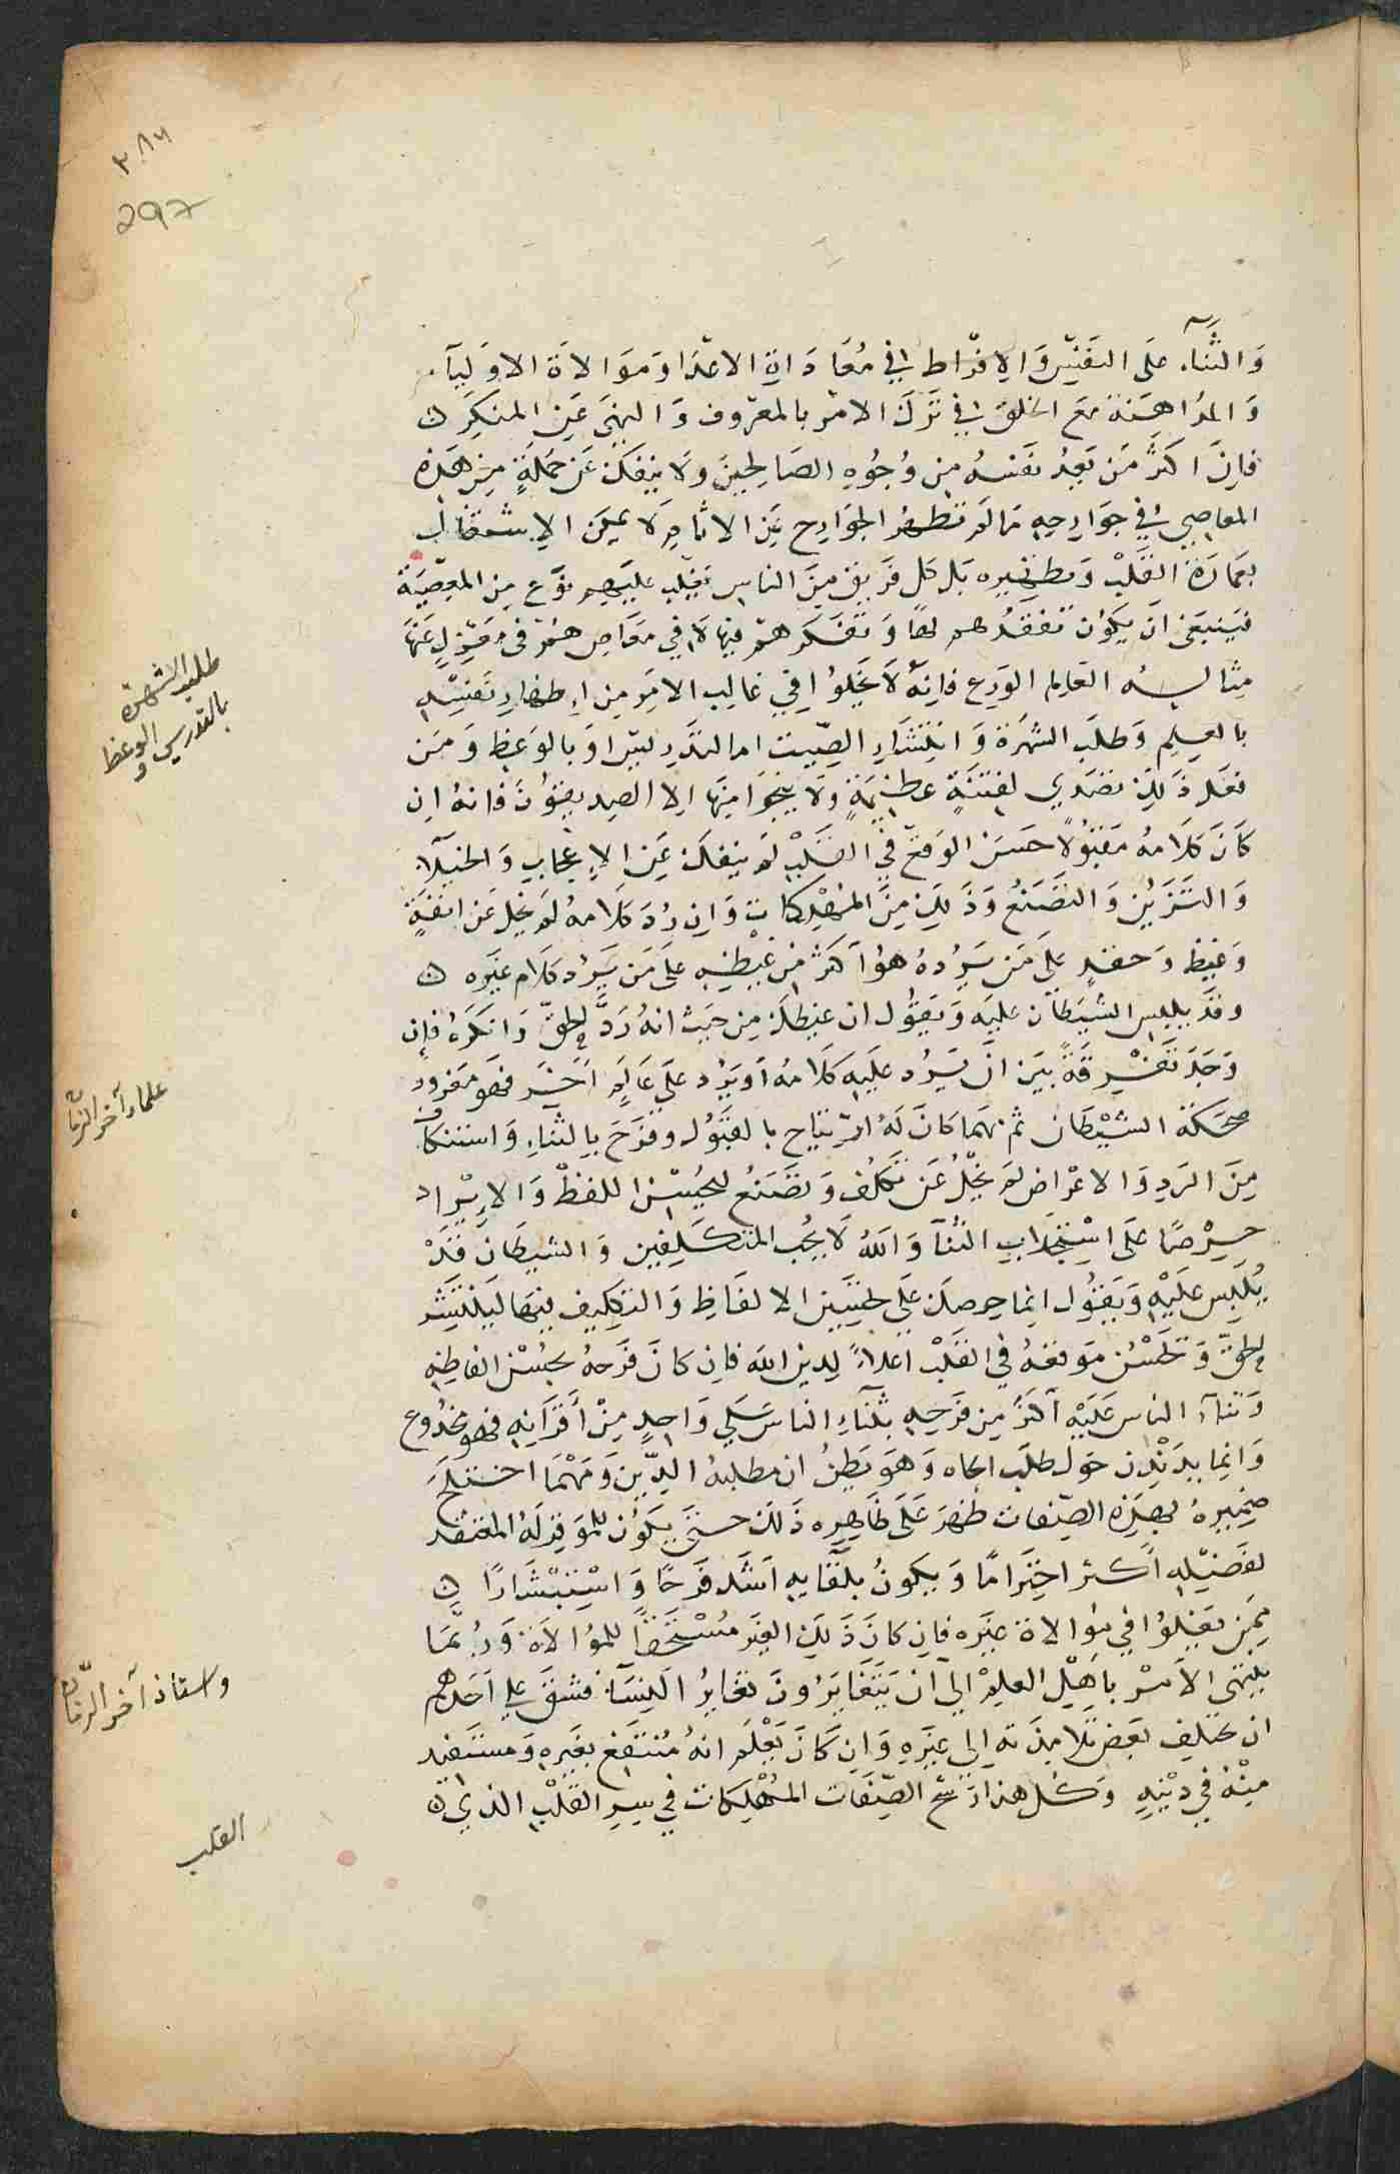 ٢٨٦
297
وَالثَّنَآءِ عَلَى النَفسِ وَالإفرَاط في مُعَادَاةِ الاعْدَاء وَمَوَالاةَ الاوَليَآء
وَالمُدَاهَنَة مَعَ الخلق في تَرْكَ الامْر بالمعْرُوف وَالنهىَ عَنِ المنكَرِ
فاِنَّ اكثَرَ مَن يَعِدُ نَفسهُ مِن وُجُوهِ الصَالِحِينَ وَلاَ ينفَكّ عَن جُملَةٍ مِن هَذِه
المعَاصِي في جوَارِحِهِ مَا لَم تطَهُر الجوَارِح مِنَ الاثامِ لاَ يمكِن الاِشْتغَال
بعمَارَة القَلْب وَتطْهِيرِه بَل كل فَريق مِنَ الناسِ يَغلب عَليهِم نوْع مِن المعْصِيَة
فيَنبَغي اَن يكَوُن تفقدُهم لهَا وَتفَكّرهمْ فيهَا لاَ في مَعَاصٍ هُمْ في مَعْزِلٍ عَنهَا
مِثَالهُ العَالِم الوَرِع فَاِنهُ لاَ يَخلُوا في غَالِب الامَرِ مِن اِظهَارِ نَفسِهِ
بالعِلمِ وَطلَب الشهرَة وَانتِشَارِ الصِّيت اما بالتدرِيسِ اوَ بالوَعظِ وَمَن
فعَلَ ذَلِكَ تصَدي لفِتنَةٍ عَظيمَةٍ وَلاَ يَنجُوا مِنهَا اِلا الصِدِيقوُنَ فَانهُ اِن
كَانَ كلاَمهُ مَقبُولاً حَسَن الوَقع في القَلْبِ لمَ ينفكَّ عَنِ الاِعجَابِ وَالخيَلآء
وَالتَّزَيُن وَالتصَنعُ وَذَلِكَ مِنَ المهْلِكَاتِ وَاِن رُدَ كلاَمهُ لَم يخل عَن انفَةٍ
وَغيظ وَحقدٍ عَلَى مَن يَرُدهُ هوُ آكثر مِن غيْظِهِ عَلَى مَن يَرُدُ كلاَم غيَرِه
وقَد يلبِس الشيَطَان عَليَه وَيَقوُل ان غيظَك مِن حَيث انهُ رَدَّ الحقّ وَانكَرهُ فاِن
وَجَدَ تَفْرِقَةً بَينَ انَ يَرُد عَلَيهِ كلاَمهُ اوَ يَرُد عَلَى عَالِمٍ اَخَر فهَو مَغرُور
ضحكَة الشيْطَان ثم مهَمَا كَانَ لَهُ ارْتيَاح بالقبَوُل وفرَح بالثناءِ وَاستنكَاف
مِنَ الرَدِ وَالاعْرَاض لَم يخْلُ عَن تكلُف وَتصَنعُ لتحْسِين اللفظ وَالاِيْرَاد
حِرْصًا عَلَى اسْتِجْلاَبِ الثنَآ وَاللهُ لاَ يحُب المتكَلِفِين وَالشيطَان قَدْ
يُلَبِس عَلَيْهِ وَيَقوُل انِما حِرصكَ عَلَى تحسِين الالفَاظِ وَالتكليِف فيهَا ليَنْتَشِر
الحقّ وَيَحْسُن مَوقعهُ في القَلْبِ اعلاَءً لِدِينِ اللهِ فاِن كانَ فَرَحهُ بحُسْن الفَاظِهِ
وَثنآء الناس عَلَيْهِ آكثَر مِن فَرَحِهِ بثَنآءِ الناسِ عَلَي وَاحِدٍ مِنْ أَقرَانِهِ فهو مخدُوع
وَانِما يدَنْدِن حَوْل طلَب الجاه وَهوَ يَظنُ ان مطلبهُ الدِّين وَمَهْمَا اختلَج
ضَمِيرهُ بهَذِه الصِفات ظهَرَ عَلَى ظَاهِرِه ذَلكَ حتىَّ يكَوُن للموَقِر لهُ المعتقد
لفَضلِهِ اَكثر احْتِرَامًا وَيكونُ بلقَايِهِ اَشَد فَرَحًا وَاسْتِبْشَارًا
مِمَن يَغلوُا في مُوالاة غيَرِه فاِن كَانَ ذَلِكَ الغيَر مُسْتَحِقاً للموُالاَة وَرُبمَا
ينتهىَ الاَمْر باَهْلِ العِلِمْ اِلى اَن يتَغَايَرُونَ تغايُر النِسَآ فشقَ عَلي اَحَدهم
ان يختلِف بَعض تلاَمِذَتهِ اِلى غيَرِهِ وَاِن كَانَ يَعْلَم انهُ مُنتَفِع بغَيرِهِ وَمُسْتَفيد
مِنْهُ في دِيْنِهِ وَكُل هذا رَشح الصِفَات المهْلِكَات في سِرِ القَلْبِ الذي
طلب الشهرة
بالتدريس والوعظ
علماء آخر الزمان
واستاذ آخر الزمان
القلب